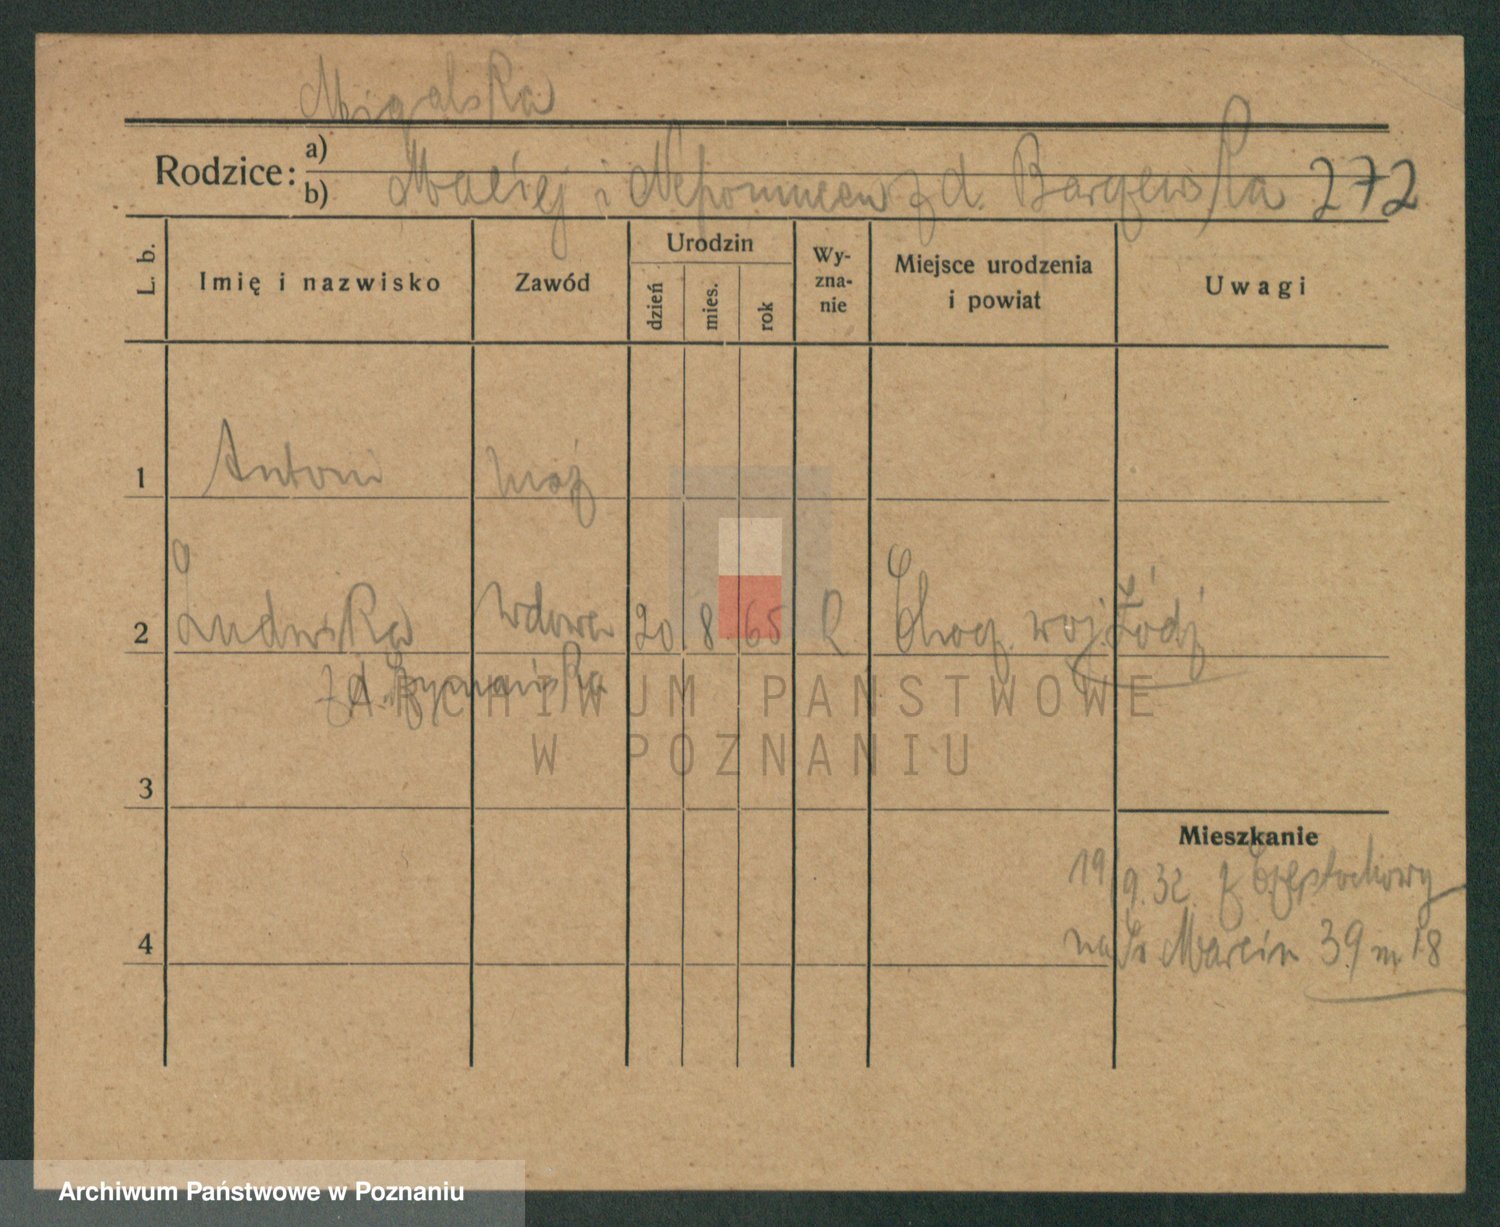 Migalska
Rodzice: a)
b) Maciej i Nepomucen z d. Barczewska 272
L. b.
Imię i nazwisko
Zawód
Urodzin
dzień
mies.
rok
Wy-
zna-
nie
Miejsce urodzenia
i powiat
Uwagi
1 Antoni mąż
2 Ludwika wdowa 20 8 65 R. Choc. woj. Łódź
z d.
3
4
Mieszkanie
19/9.32. z Częstochowy
na Św Marcin 39 m 18
ARCHIWUM PAŃSTWOWE
W POZNANIU
Archiwum Państwowe w Poznaniu